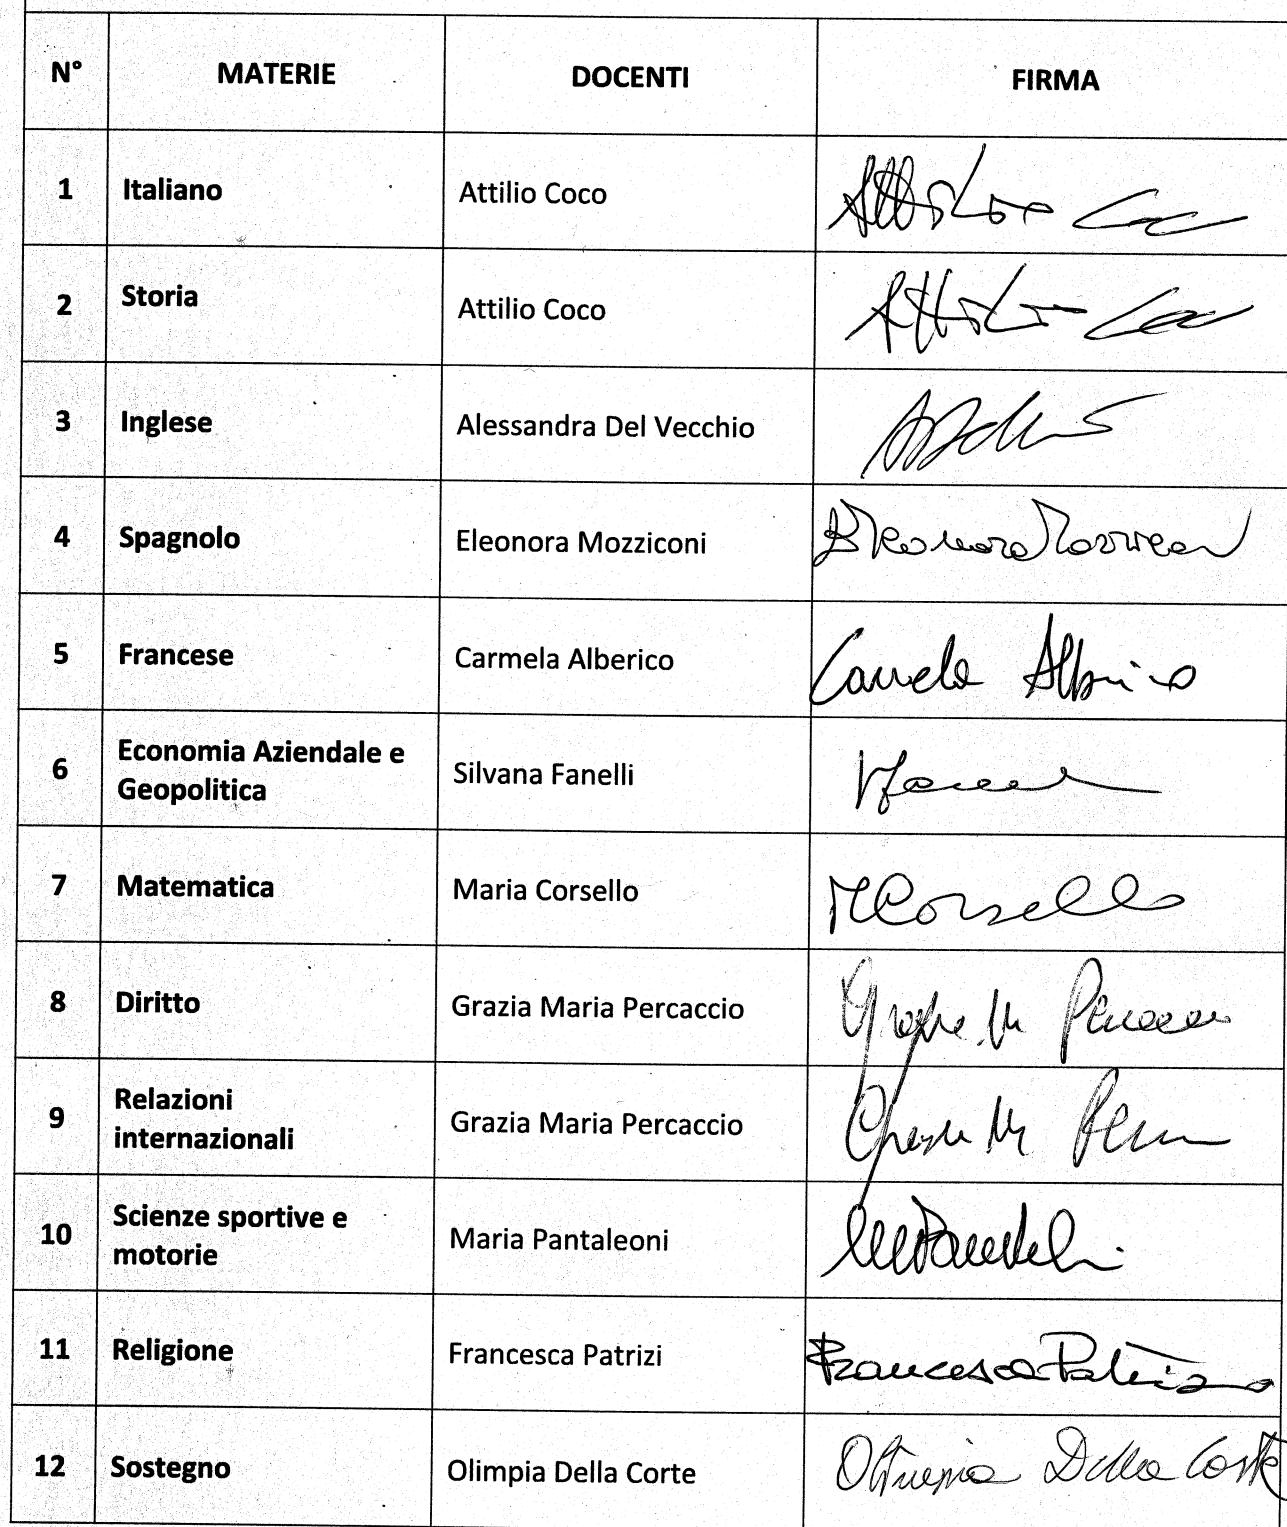 N° MATERIE DOCENTI FIRMA
1 Italiano Attilio Coco Attilio Coco
2 Storia Attilio Coco Attilio Coco
3 Inglese Alessandra Del Vecchio
4 Spagnolo Eleonora Mozziconi Eleonora
5 Francese Carmela Alberico Carmela Alberico
6 Economia Aziendale e
Geopolitica Silvana Fanelli
7 Matematica Maria Corsello MCorsello
8 Diritto Grazia Maria Percaccio
9 Relazioni
internazionali Grazia Maria Percaccio
10 Scienze sportive e
motorie Maria Pantaleoni
11 Religione Francesca Patrizi Francesca
12 Sostegno Olimpia Della Corte Olimpia Della Corte